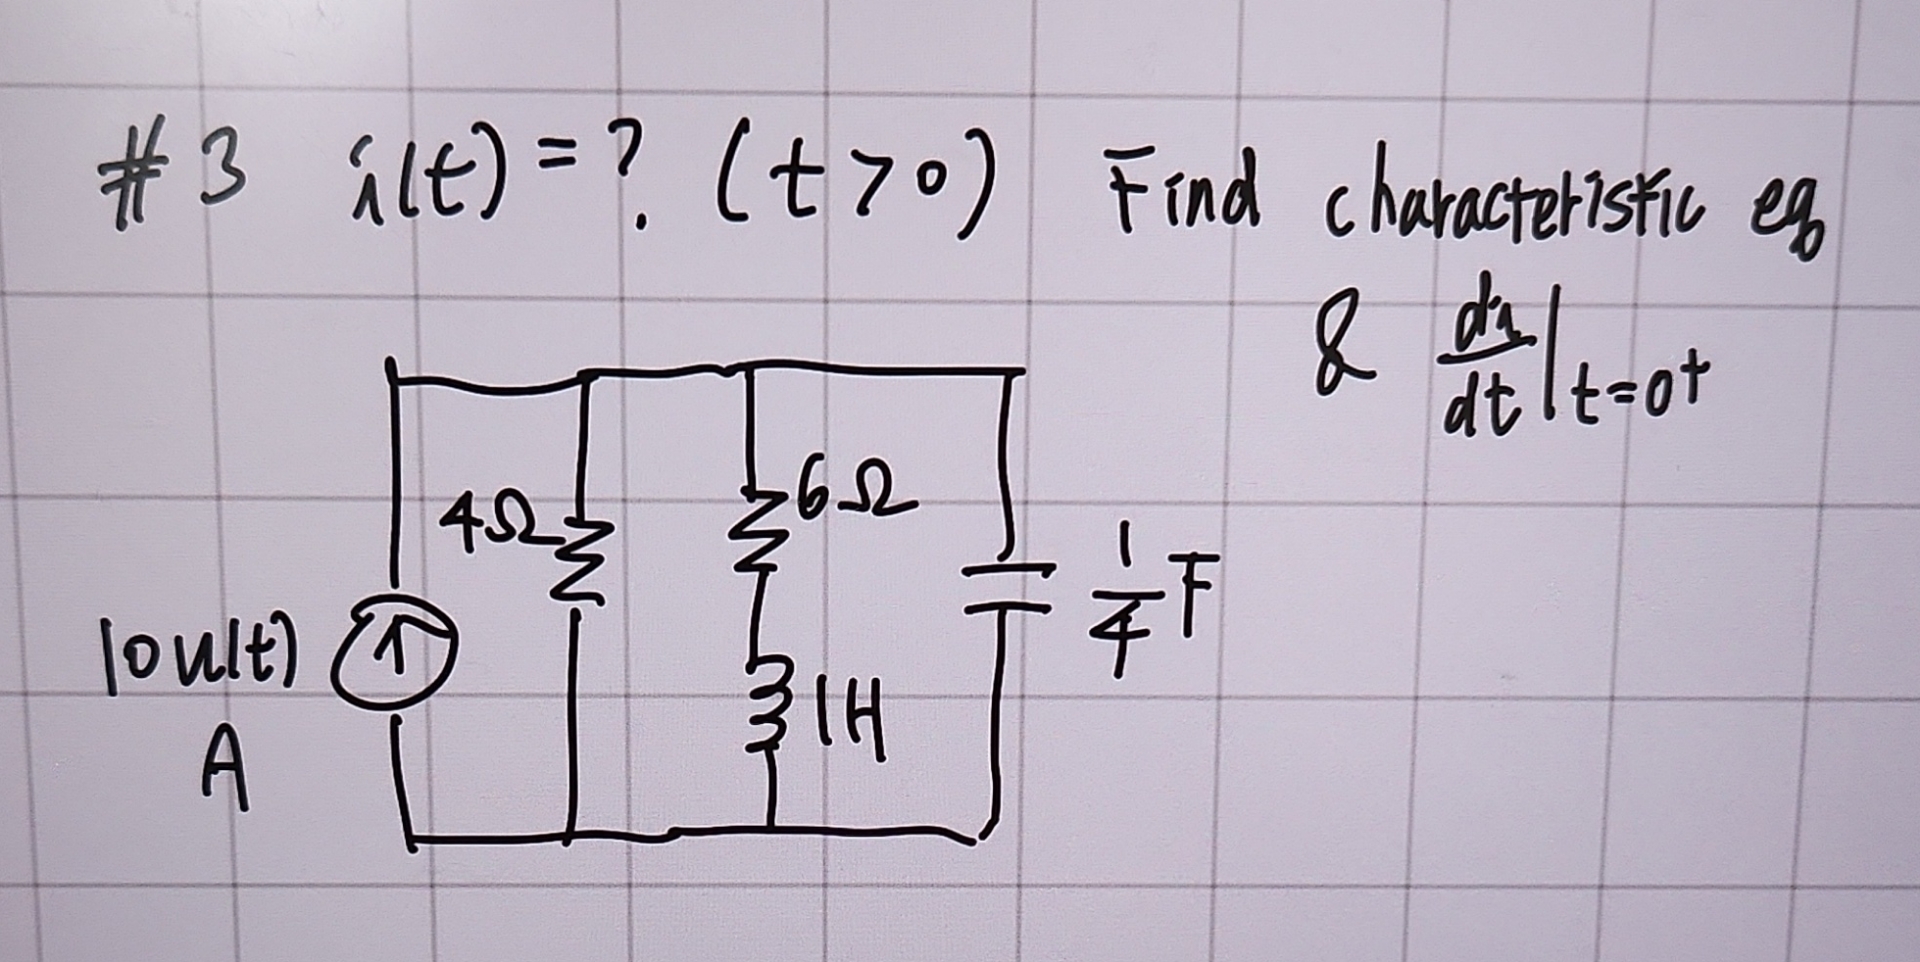 #3 i(t)=? (t>0) Find characteristic eq
& di/dt|t=0+
4Ω
6Ω
1/4 F
10u(t)
A
1H